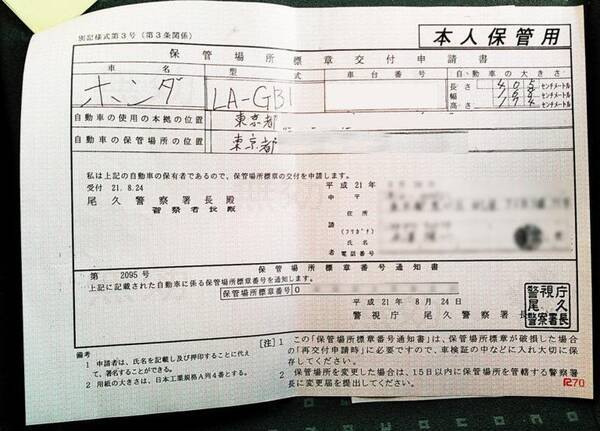 別記様式第3号（第3条関係）
本人保管用
保管場所標章交付申請書
車名 型式 車台番号 自動車の大きさ
ホンダ LA-GB1
長さ 405 センチメートル
幅 169 センチメートル
高さ センチメートル
自動車の使用の本拠の位置 東京都
自動車の保管場所の位置 東京都
私は上記の自動車の保有者であるので、保管場所標章の交付を申請します。
受付 21.8.24 平成21年
尾久警察署長殿
警察署長殿
申請者
〒
住所
（フリガナ）
氏名
電話番号
第 2095号 保管場所標章番号通知書
上記に記載された自動車に係る保管場所標章番号を通知します。
保管場所標章番号 0
平成21年8月24日
警視庁 尾久警察署長
警視庁
尾久
警察署長
備考
1 申請者は、氏名を記載し及び押印することに代えて、署名することができる。
2 用紙の大きさは、日本工業規格A列4番とする。
［注］1 この「保管場所標章番号通知書」は、保管場所標章が破損した場合
の「再交付申請時」に必要ですので、車検証の中などに入れ大切に保
存してください。
2 保管場所を変更した場合は、15日以内に保管場所を管轄する警察署
長に変更届を提出してください。
R70